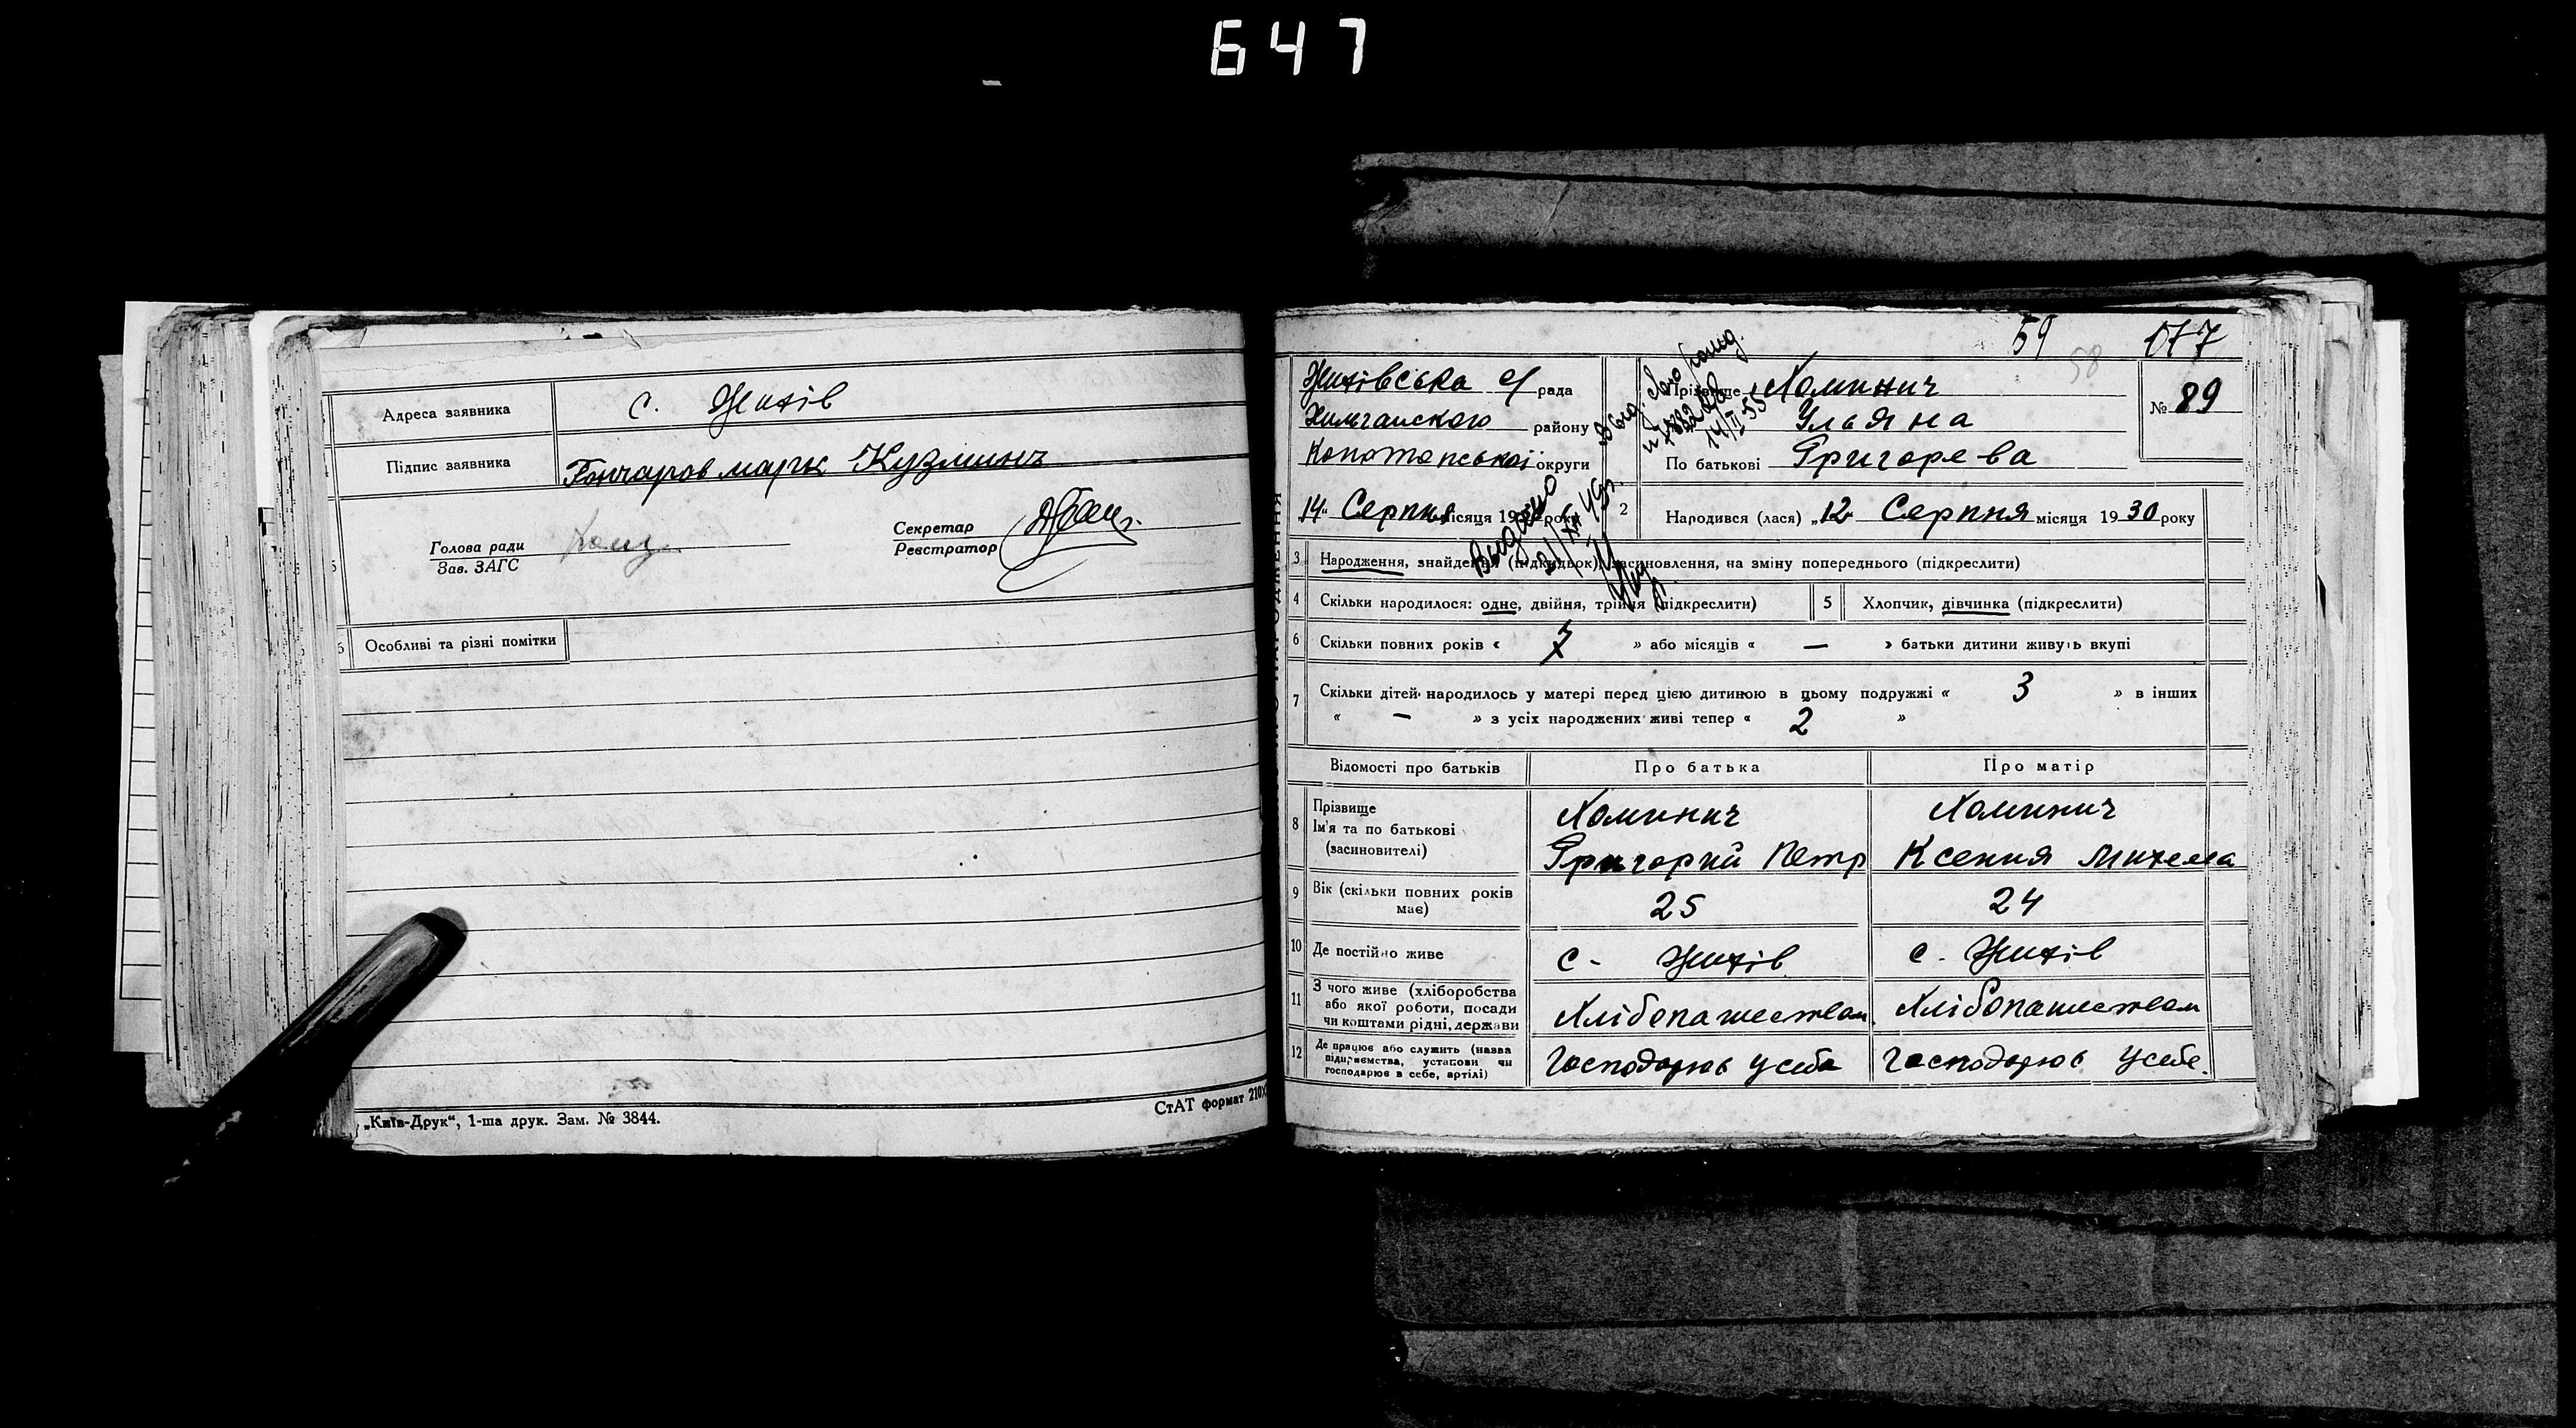 647
Адреса заявника с. Жихів
Підпис заявника Гончаров марк Кузминъ
Голова ради
Зав. ЗАГС
Секретар
Реєстратор
Особливі та різні помітки
„Київ-Друк“, 1-ша друк. Зам. № 3844.
СтАТ формат 210X
59 58 177
Жихівська с/ рада
Хильчанского району
Конотопської округи
14 Серпня місяця 1930 року
Видано
21/XII 49г.
14/II 55
Прізвище Хоминич
Ульяна
По батькові Григорева
№ 89
2 Народився (лася) „12 Серпня місяця 1930 року
3 Народження, знайдення (підкидьок), засиновлення, на зміну попереднього (підкреслити)
4 Скільки народилося: одне, двійня, трійня (підкреслити)
5 Хлопчик, дівчинка (підкреслити)
6 Скільки повних років « 7 » або місяців « — » батьки дитини живуть вкупі
7 Скільки дітей народилось у матері перед цією дитиною в цьому подружжі « 3 » в інших
« — » з усіх народжених живі тепер « 2 »
Відомості про батьків Про батька Про матір
8 Прізвище
Ім'я та по батькові
(засиновителі)
Хоминич
Григорий Петр
Хоминич
Ксения Михела
9 Вік (скільки повних років
має)
25 24
10 Де постійно живе с - Жихів с. Жихів
11 З чого живе (хліборобства
або якої роботи, посади
чи коштами рідні, держави
Хлібопашеством Хлібопашеством
12 Де працює або служить (назва
підприємства, установи чи
господарює в себе, артілі)
Господарює у себе Господарює у себе.